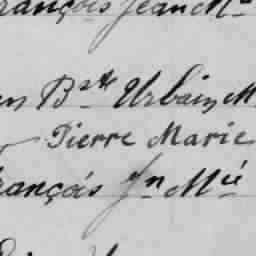 rançois Jean M
en Bste Urbain M
Pierre Marie
rançois Jn Mie